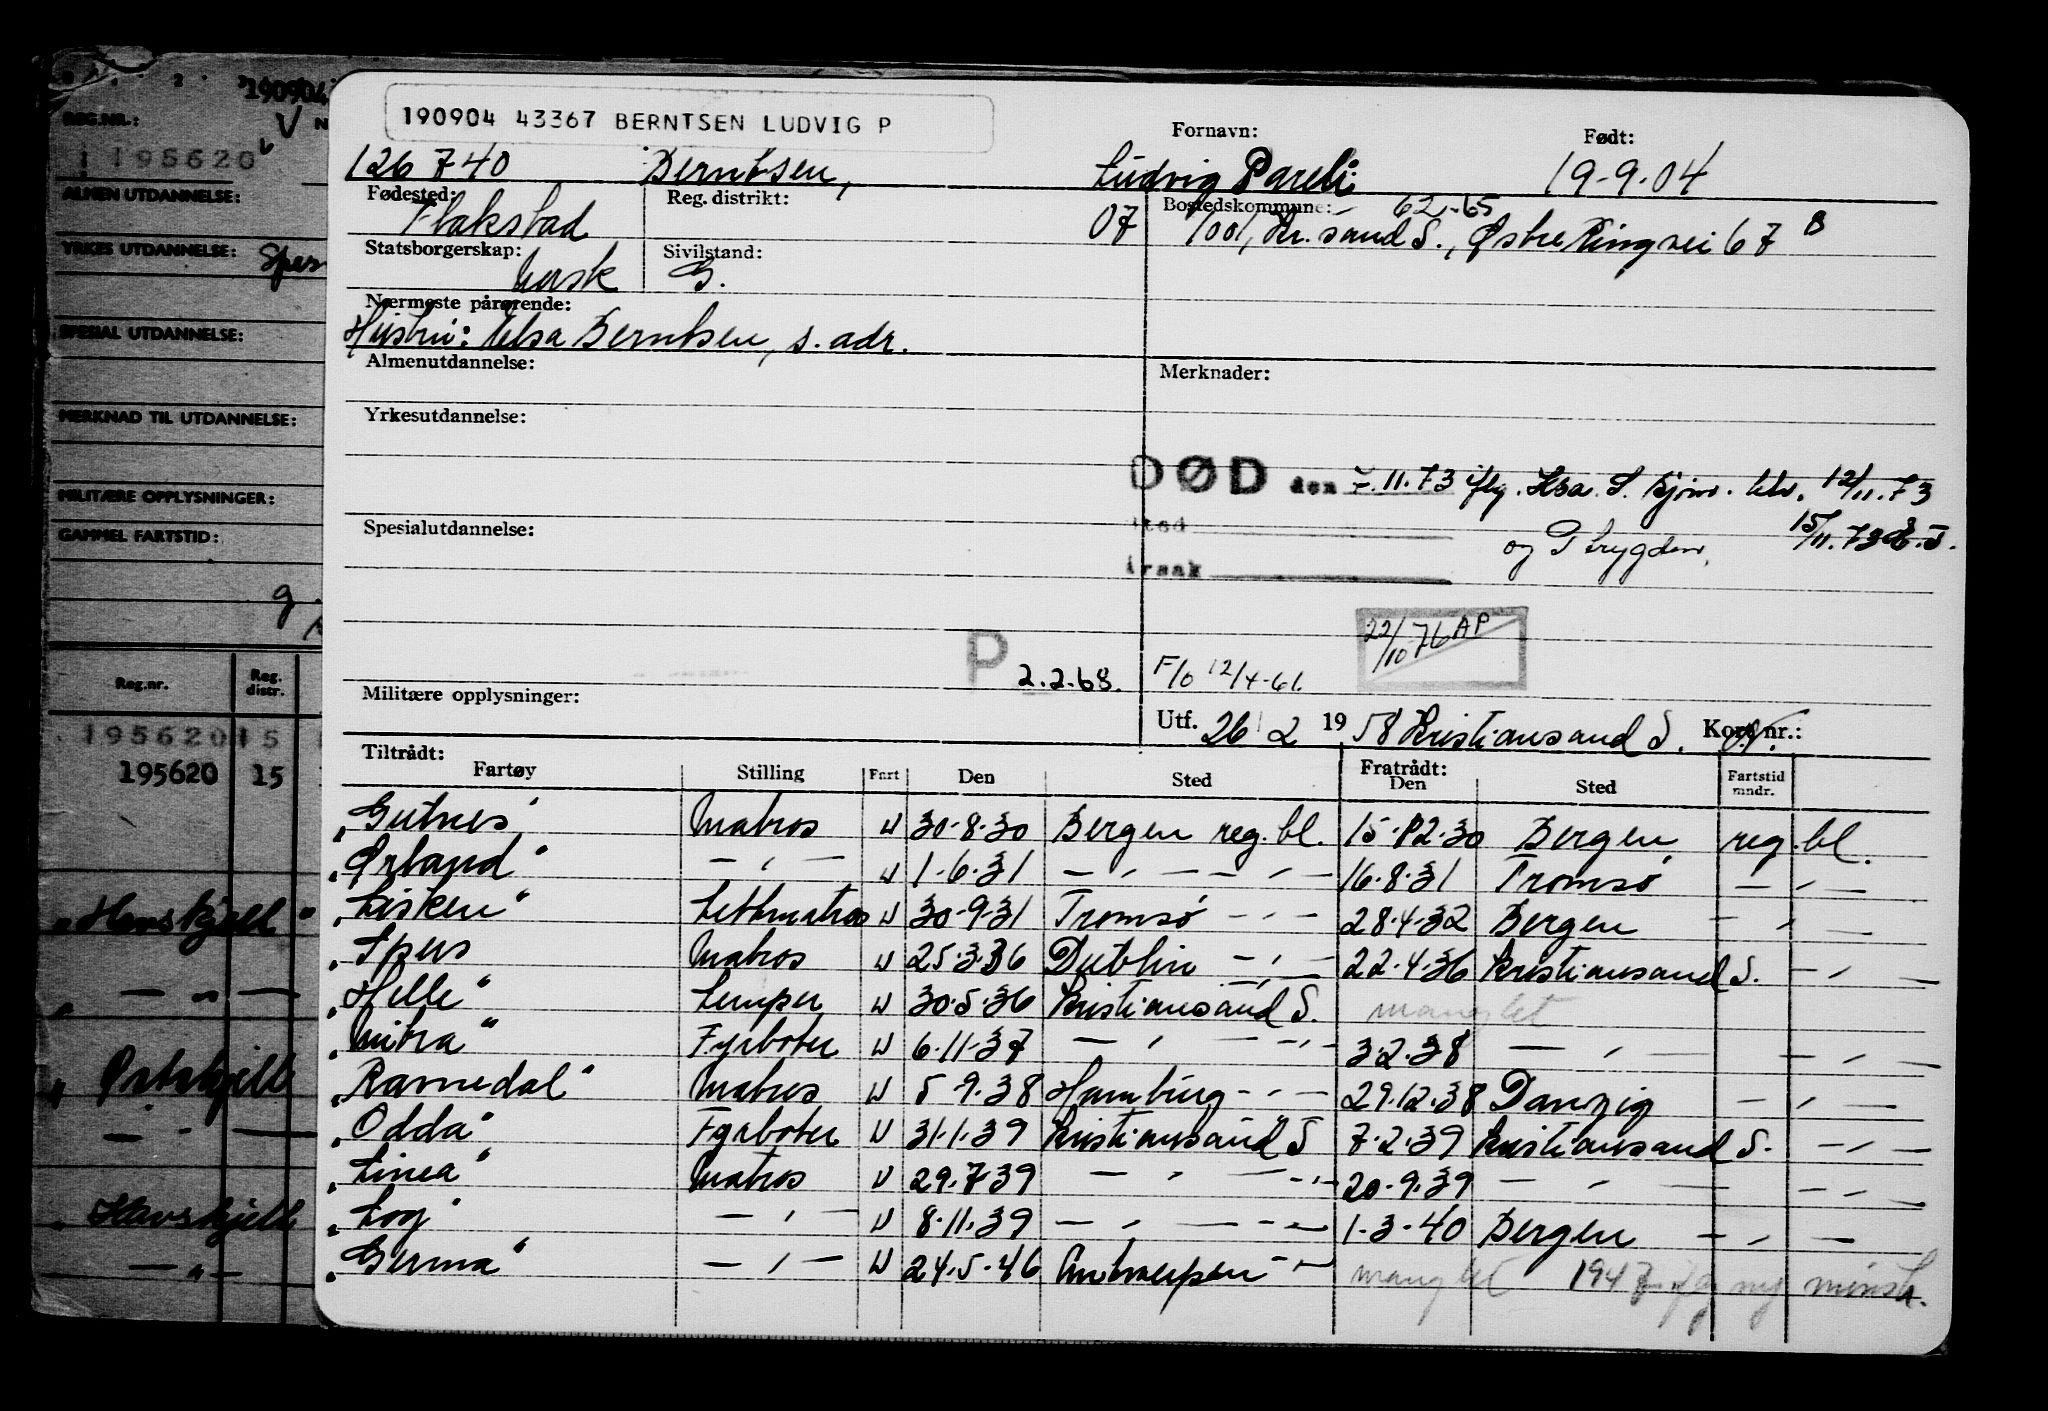 190904
REG.NR.:
195620
ALMEN UTDANNELSE:
YRKES UTDANNELSE:
SPESIAL UTDANNELSE:
MERKNAD TIL UTDANNELSE:
MILITÆRE OPPLYSNINGER:
GAMMEL FARTSTID:
Reg.nr. Reg. distr.
195620 15
195620 15
"Havskjell"
" — " —
" Østskjell
— " —
" Havskjell
— " —
190904 43367 BERNTSEN LUDVIG P
Fornavn: Født:
126740 Berntsen, Ludvig Pareli 19-9-04
Fødested: Reg. distrikt: Bostedskommune: 62-65
Flakstad 07 1001, Kr.sand S., Østre Ringvei 67 B
Statsborgerskap: Sivilstand:
Norsk G.
Nærmeste pårørende:
Hustru: Elsa Berntsen, s. adr.
Almenutdannelse: Merknader:
Yrkesutdannelse:
DØD den 7.11.73 iflg. Ksa. S. Sjøm. ktr. 12/11.73
og Trygden, 15/11.73
Spesialutdannelse:
sted
årsak
22/10-76 AP
P 2.2.68. F/o 12/4-61.
Militære opplysninger:
Utf. 26/2 1958 Kristiansand S. Kort nr.:
Tiltrådt: Fratrådt:
Fartøy Stilling Fart Den Sted Den Sted Fartstid mndr.
"Gutnes" Matros U 30-8-30 Bergen reg.bl. 15-12-30 Bergen reg.bl.
"Ørland" — " — U 1-6-31 — " — — " — 16-8-31 Tromsø — " —
"Lisken" Lettmatros U 30-9-31 Tromsø — " — 28-4-32 Bergen — " —
"Spes Matros U 25-3-36 Dublin — " — 22-4-36 Kristiansand S. — " —
"Helle" Lemper U 30-5-36 Kristiansand S. manglet
"Mitra" Fyrbøter U 6-11-37 — " — — " — 3-2-38 — " — — " —
"Ravnedal" Matros U 5-9-38 Hamburg — " — 29-12-38 Danzig — " —
"Odda" Fyrbøter U 31-1-39 Kristiansand S 7-2-39 Kristiansand S. — " —
"Linea" Matros U 29-7-39 — " — — " — 20-9-39 — " — — " —
"Log" — " — U 8-11-39 — " — — " — 1-3-40 Bergen — " —
"Germa" — " — U 24-5-46 Antwerpen — " — manglet 1947 iflg ny mønstr.